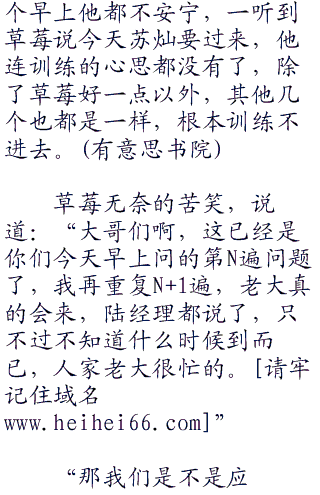 个早上他都不安宁，一听到
草莓说今天苏灿要过来，他
连训练的心思都没有了，除
了草莓好一点以外，其他几
个也都是一样，根本训练不
进去。(有意思书院)
草莓无奈的苦笑，说
道：“大哥们啊，这已经是
你们今天早上问的第N遍问题
了，我再重复N+1遍，老大真
的会来，陆经理都说了，只
不过不知道什么时候到而
已，人家老大很忙的。[请牢
记住域名
www.heihei66.com]”
“那我们是不是应